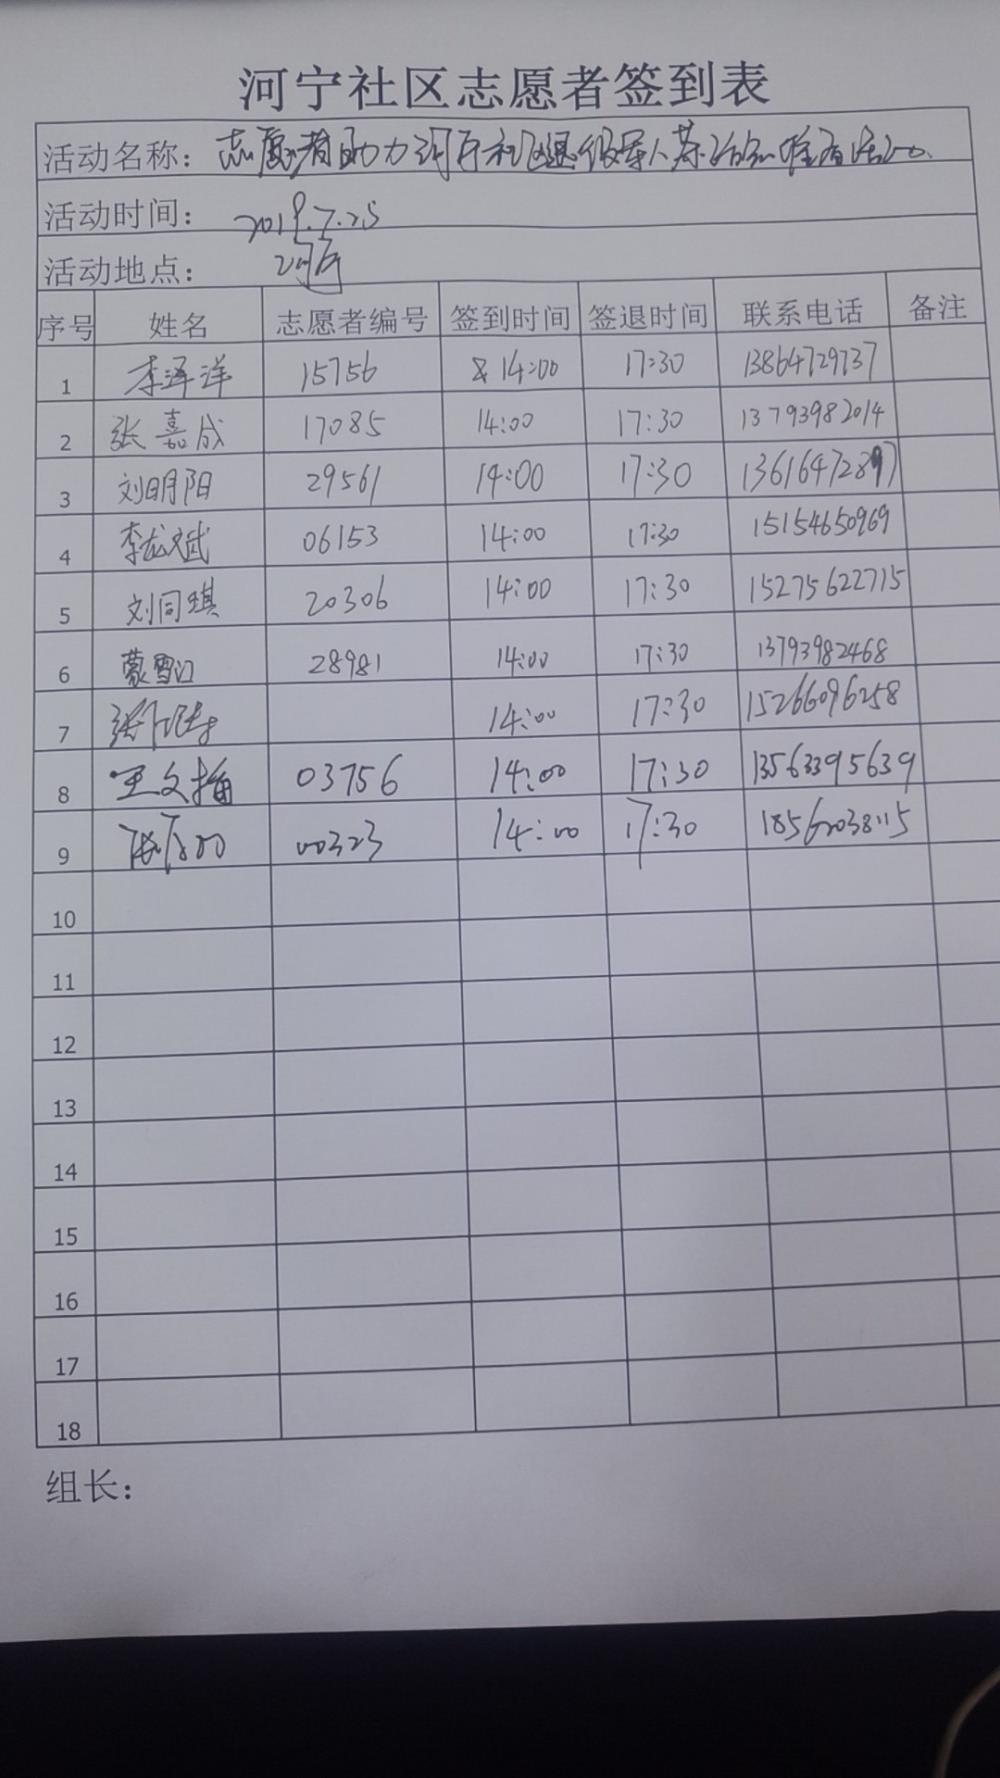 河宁社区志愿者签到表
活动名称：志愿者助力
活动时间：2019.7.25
活动地点：
序号 姓名 志愿者编号 签到时间 签退时间 联系电话 备注
1 李泽洋 15756 14:00 17:30 13864729737
2 张嘉成 17085 14:00 17:30 13793982014
3 刘明阳 29561 14:00 17:30
4 李龙斌 06153 14:00 17:30 15154650969
5 刘同琪 20306 14:00 17:30 15275622715
6 蒙雪 28981 14:00 17:30 13793982468
7 14:00 17:30 15266096258
8 王文 03756 14:00 17:30 13563395639
9 00323 14:00 17:30
10
11
12
13
14
15
16
17
18
组长：